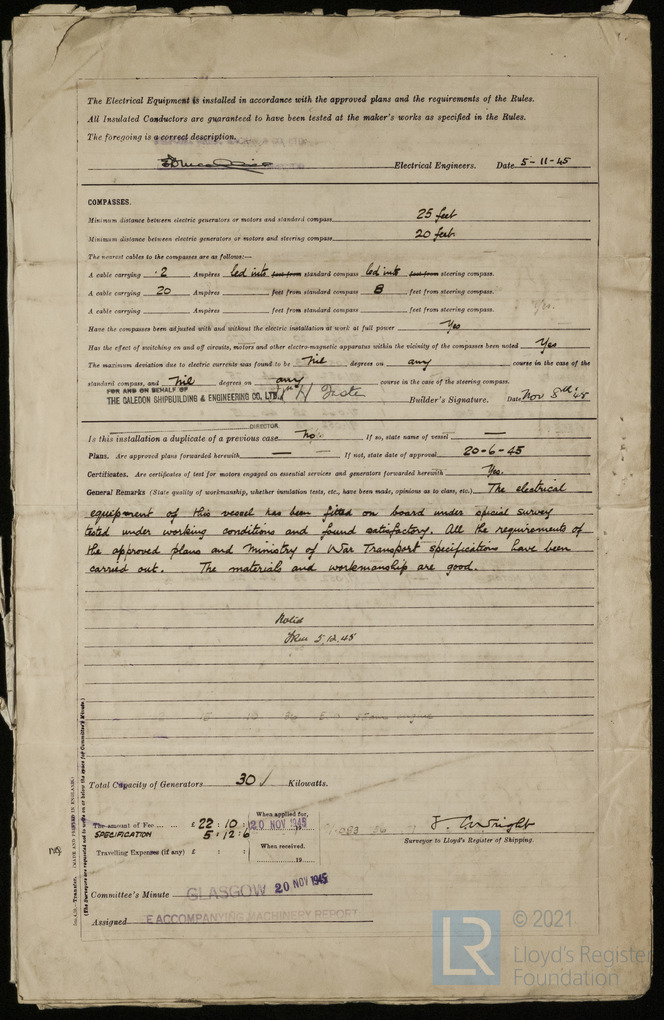 The Electrical Equipment is installed in accordance with the approved plans and the requirements of the Rules.
All Insulated Conductors are guaranteed to have been tested at the maker's works as specified in the Rules.
The foregoing is a correct description.
Electrical Engineers. Date 5-11-45
COMPASSES.
Minimum distance between electric generators or motors and standard compass 25 feet
Minimum distance between electric generators or motors and steering compass 20 feet
The nearest cables to the compasses are as follows:—
A cable carrying ·2 Ampères led into feet from standard compass led into feet from steering compass.
A cable carrying 20 Ampères feet from standard compass 8 feet from steering compass.
A cable carrying Ampères feet from standard compass feet from steering compass.
Have the compasses been adjusted with and without the electric installation at work at full power Yes
Has the effect of switching on and off circuits, motors and other electro-magnetic apparatus within the vicinity of the compasses been noted Yes
The maximum deviation due to electric currents was found to be Nil degrees on any course in the case of the
standard compass, and Nil degrees on any course in the case of the steering compass.
FOR AND ON BEHALF OF
THE CALEDON SHIPBUILDING & ENGINEERING CO. LTD. Builder's Signature. Date Nov 8th '45
DIRECTOR
Is this installation a duplicate of a previous case No If so, state name of vessel —
Plans. Are approved plans forwarded herewith — — If not, state date of approval 20-6-45
Certificates. Are certificates of test for motors engaged on essential services and generators forwarded herewith Yes.
General Remarks (State quality of workmanship, whether insulation tests, etc., have been made, opinions as to class, etc.) The electrical
equipment of this vessel has been fitted on board under special survey
tested under working conditions and found satisfactory. All the requirements of
the approved plans and Ministry of War Transport specifications have been
carried out. The materials and workmanship are good.
Noted
5.12.45
Total Capacity of Generators 30 Kilowatts.
The amount of Fee ... ... £ 22 : 10 : When applied for, 20 NOV 1945
SPECIFICATION 5 : 12 : 6
Travelling Expenses (if any) £ : : When received. 19
Surveyor to Lloyd's Register of Shipping.
Committee's Minute GLASGOW 20 NOV 1945
Assigned E ACCOMPANYING MACHINERY REPORT
(MADE AND PRINTED IN ENGLAND)
(The Surveyors are requested not to write on or below the space for Committee's Minute.)
LR © 2021
Lloyd's Register
Foundation